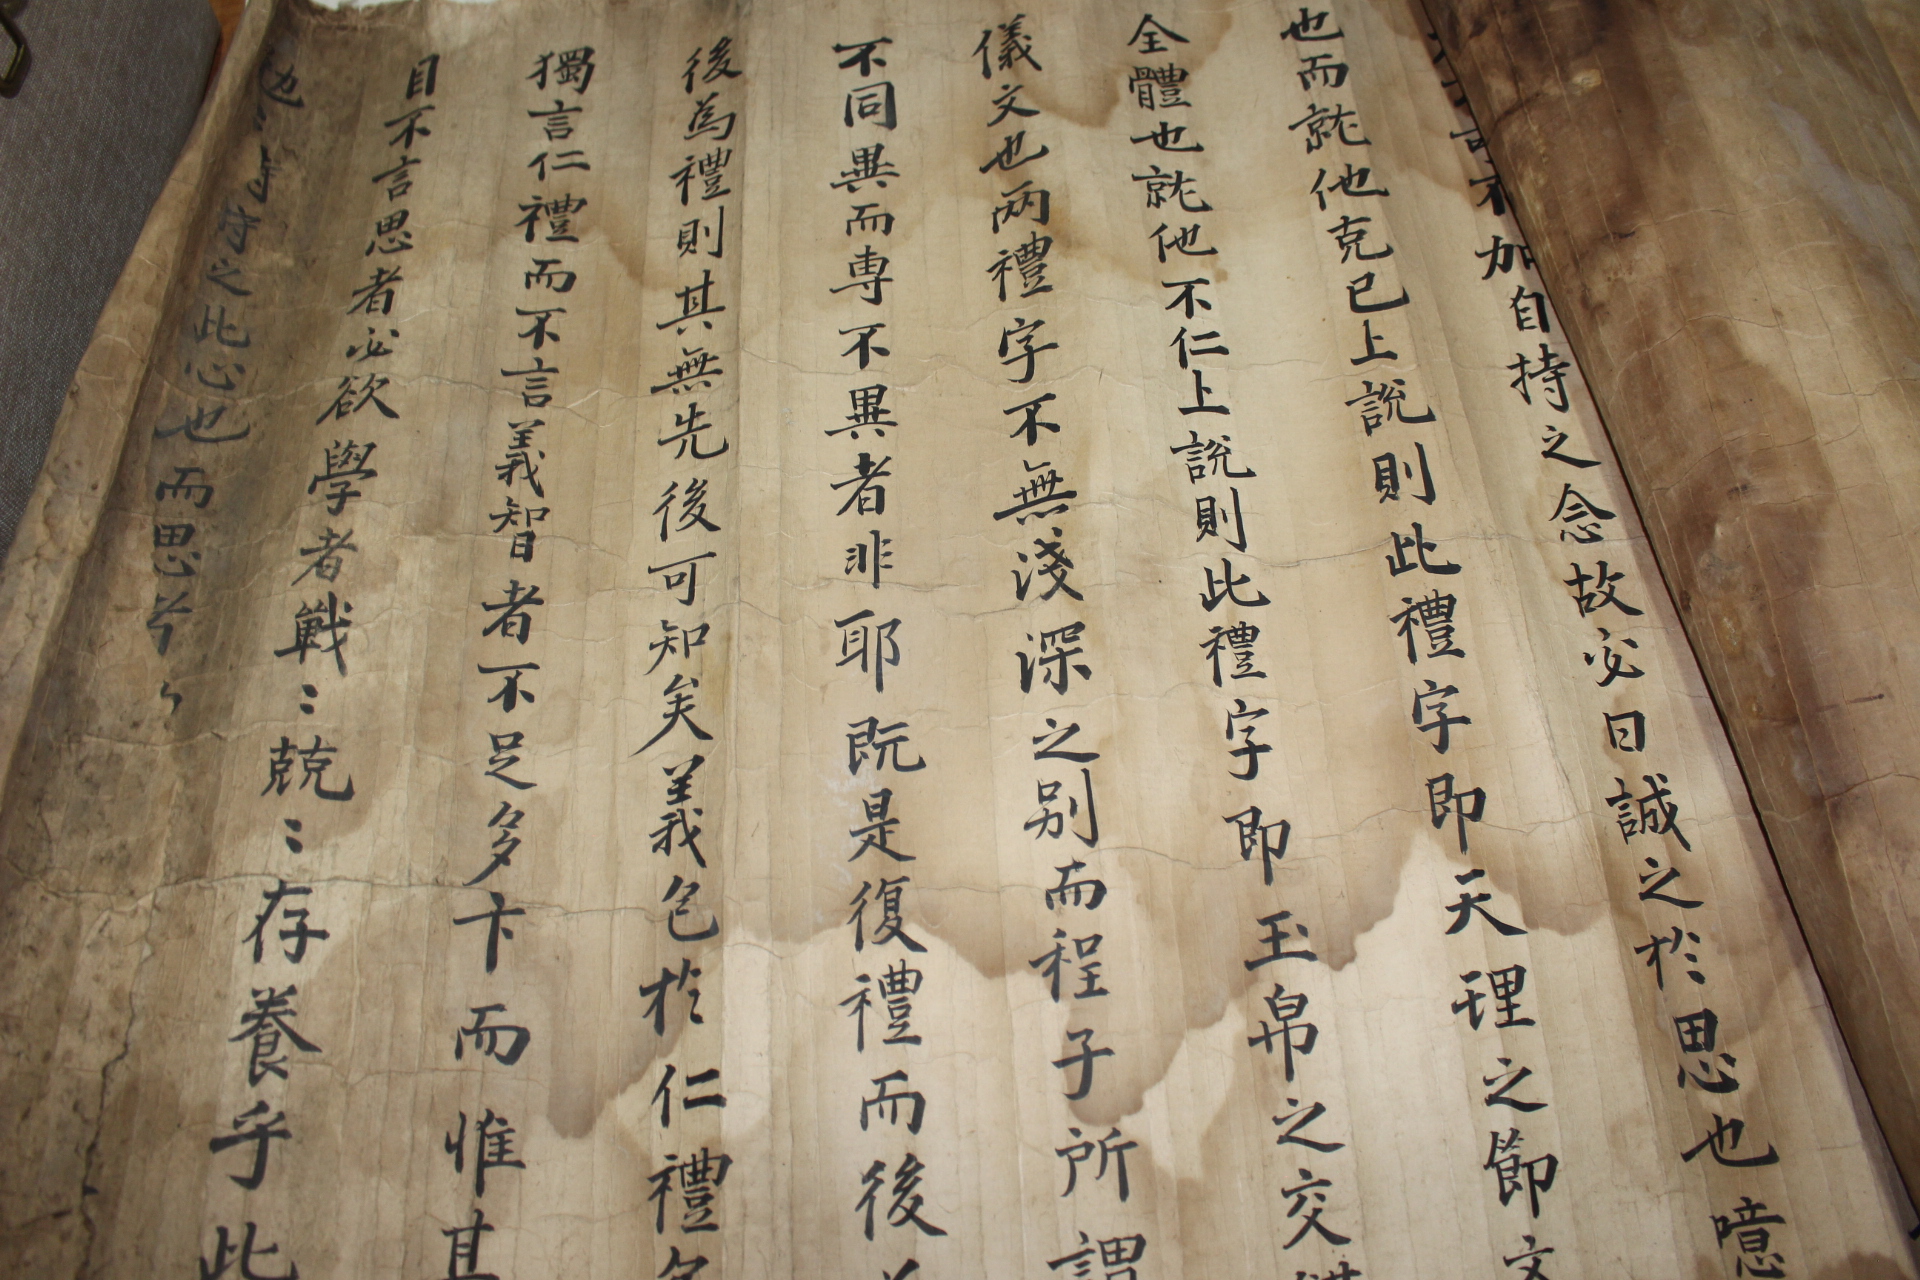 可不加自持之念故必曰誠之於思也噫
也而就他克己上說則此禮字即天理之節文
全體也就他不仁上說則此禮字即玉帛之交錯
儀文也两禮字不無淺深之别而程子所謂
不同異而專不異者非耶既是復禮而後
後為禮則其無先後可知矣義包於仁禮
獨言仁禮而不言義智者不足多卞而惟其
目不言思者必欲學者戰〻兢〻存養乎此
持之此心也而思